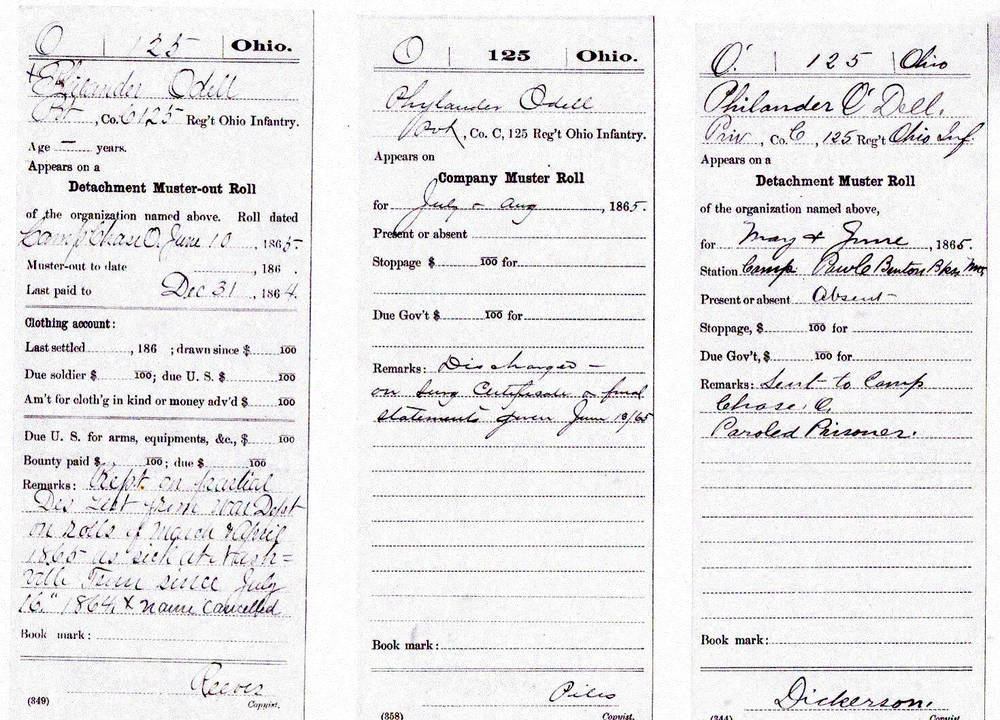 O | 125 | Ohio.
Philander Odell
Pvt, Co. C 125 Reg't Ohio Infantry.
Age — years.
Appears on a
Detachment Muster-out Roll
of the organization named above. Roll dated
Camp Chase O. June 10, 1865
Muster-out to date , 186 .
Last paid to Dec 31, 1864.
Clothing account:
Last settled , 186 ; drawn since $ 100
Due soldier $ 100; due U. S. $ 100
Am't for cloth'g in kind or money adv'd $ 100
Due U. S. for arms, equipments, &c., $ 100
Bounty paid $ 100; due $ 100
Remarks: Rept. on partial
Des List from War Dept
on rolls of March & April
1865 as sick at Nash=
ville Tenn since July
16." 1864. & name cancelled
Book mark:
Reeves
(349) Copyist.
O | 125 | Ohio.
Phylander Odell
Pvt, Co. C, 125 Reg't Ohio Infantry.
Appears on
Company Muster Roll
for July & Aug, 1865.
Present or absent
Stoppage $ 100 for
Due Gov't $ 100 for
Remarks: Discharged –
on Surg Certificate & final
statements given June 19/65
Book mark:
(358) Copyist.
O'. | 125 | Ohio
Philander O'Dell.
Priv, Co. C, 125 Reg't Ohio Inf.
Appears on a
Detachment Muster Roll
of the organization named above,
for May & June, 1865.
Station Camp Parole Benton Bks Mo
Present or absent Absent
Stoppage, $ 100 for
Due Gov't, $ 100 for
Remarks: Sent to Camp
Chase, O.
Paroled Prisoner.
Book mark:
Dickerson.
(344) Copyist.